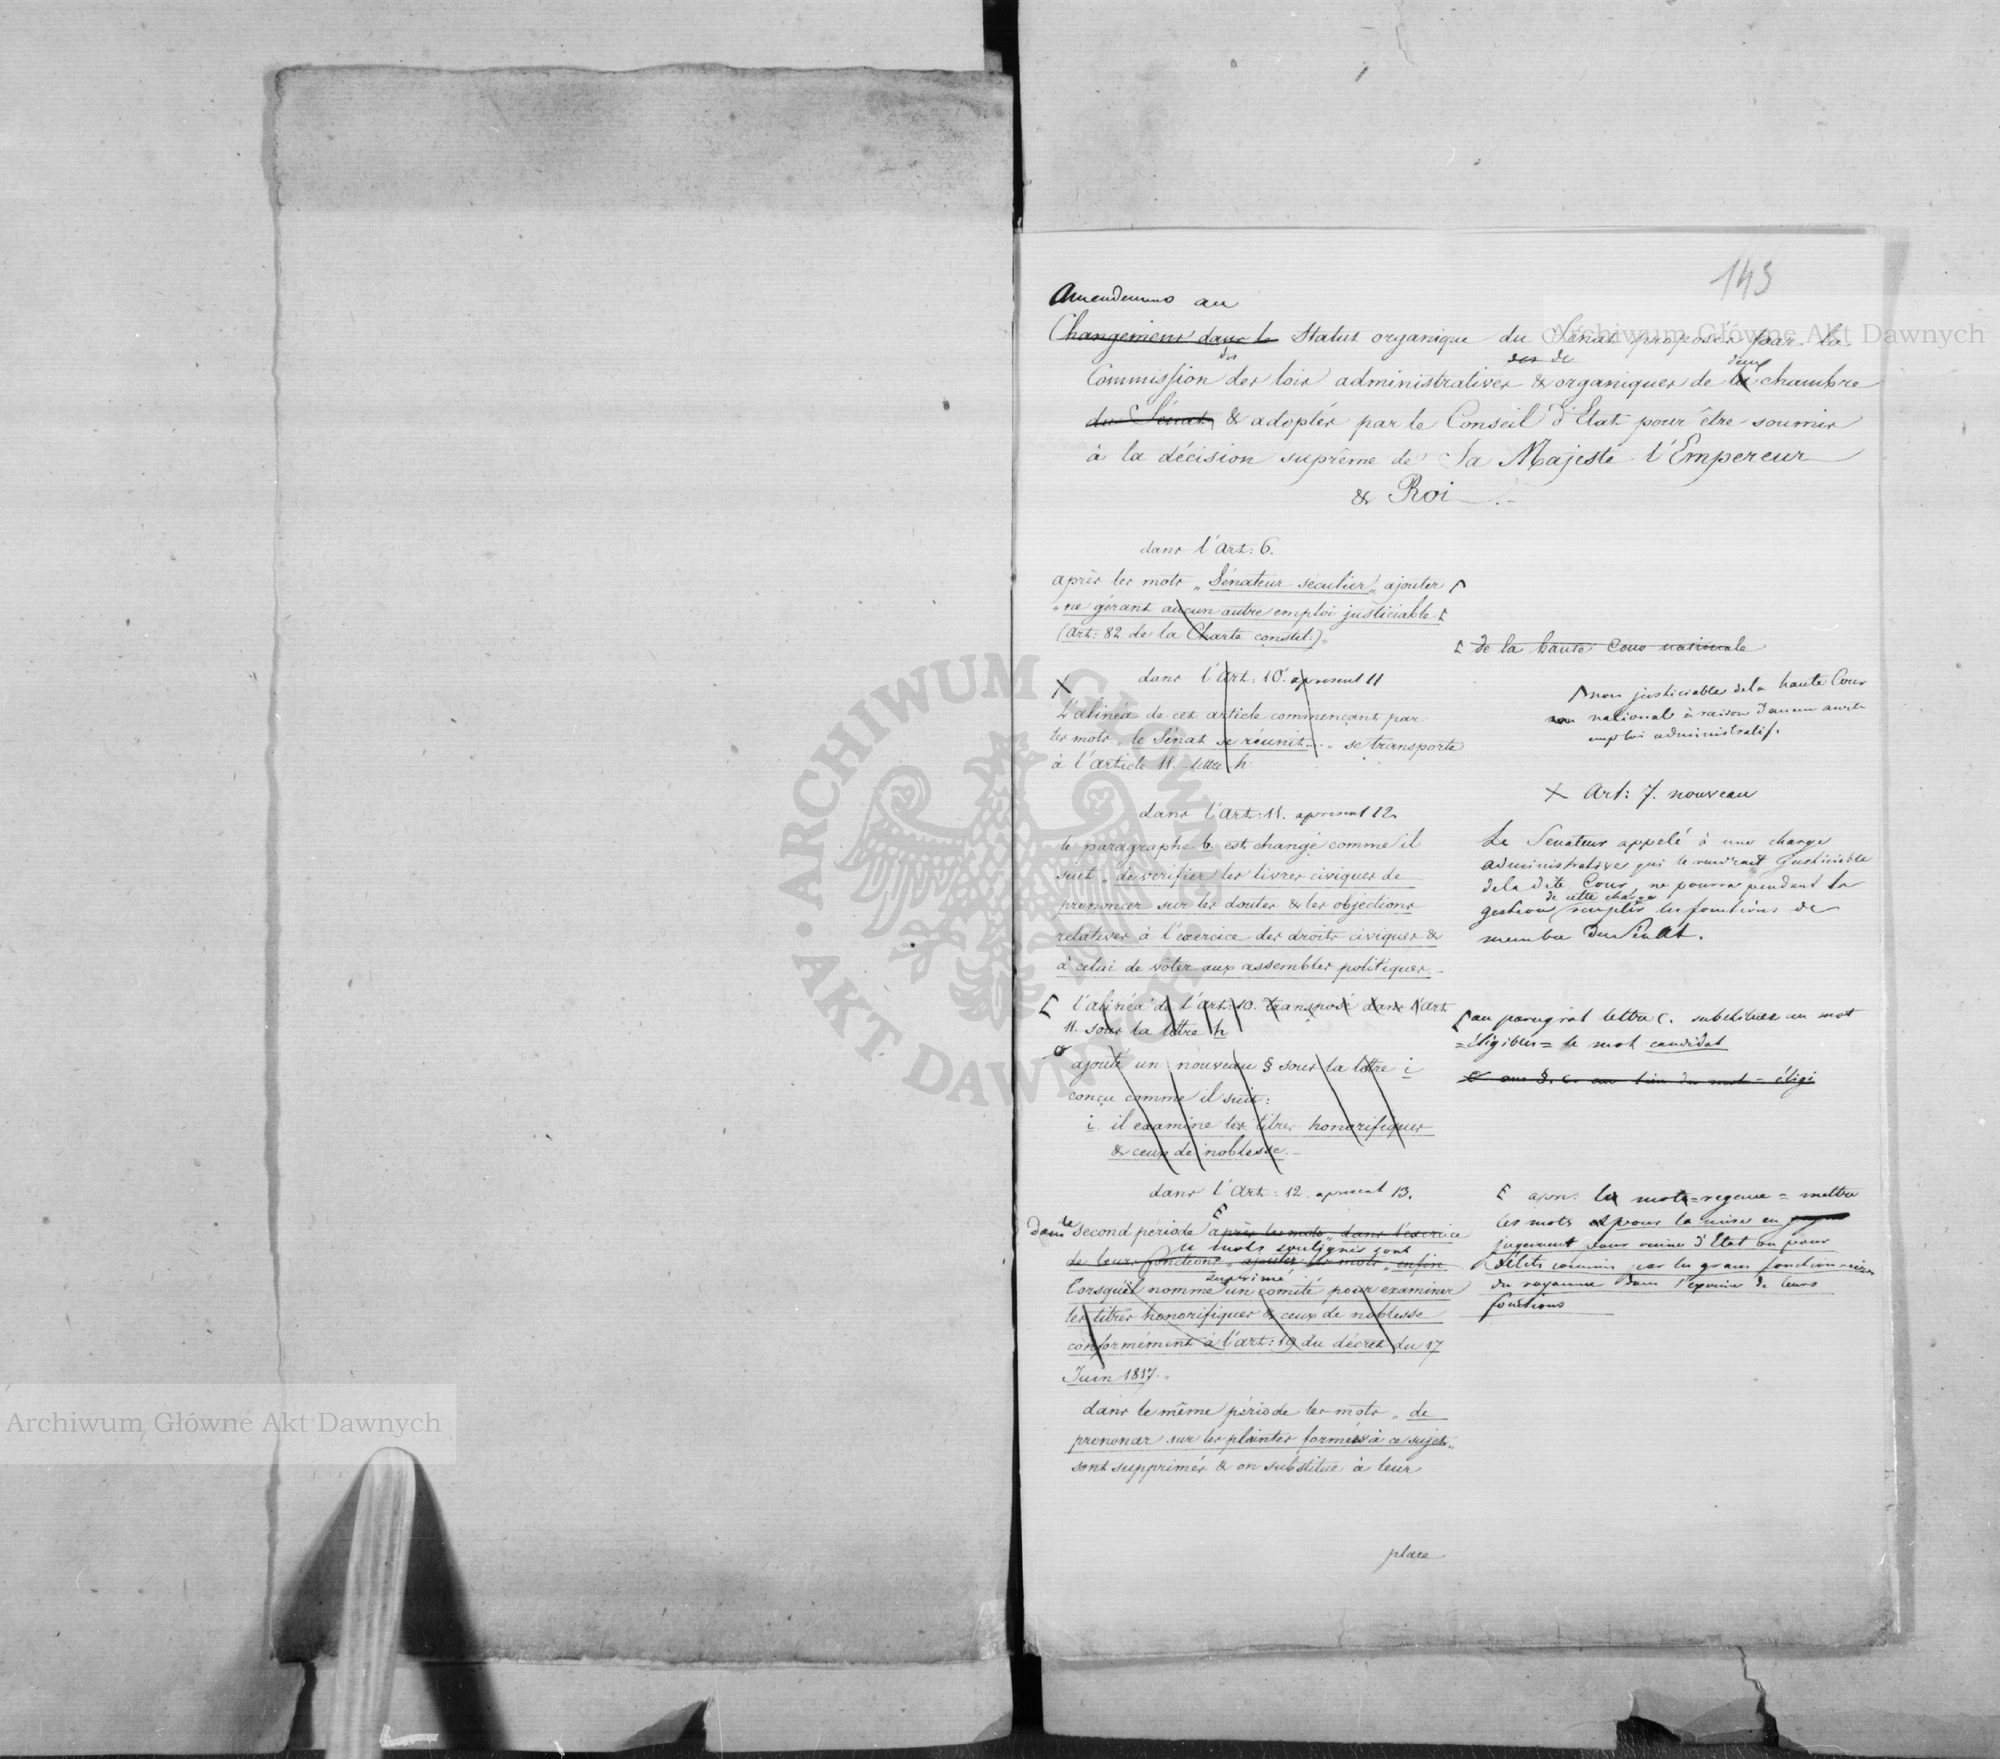 143
Amendemens au
Changemens dans le Statut organique du Sénat proposés par la
des des de deux
Commission des loix administratives & organiques de la chambre
du Sénat & adoptés par le Conseil d'Etat pour être soumis
à la décision suprême de Sa Majesté l'Empereur
& Roi
dans l'Art: 6.
après les mots „ Sénateur séculier „ ajouter
„ ne gérant aucun autre emploi justiciable
(Art: 82 de la Charte constit:) „
dans l'Art: 10. apresent 11
L'alinéa de cet article commençant par
les mots „ le Sénat se réunit.... „ se transporte
à l'article 11. lettre h
dans l'Art: 11. apresent 12
le paragraphe b. est changé comme il
suit „ de vérifier les livres civiques de
prononcer sur les doutes & les objections
relatives à l'exercice des droits civiques &
à celui de voter aux assemblées politiques.
l'alinéa de l'art: 10. transposé dans l'art
11. sous la lettre h
ajouté un nouveau § sous la lettre i
conçu comme il suit:
i. il examine les titres honorifiques
& ceux de noblesse.
dans l'Art: 12. apresent 13.
Dans le second période après les mots „ dans l'exercice
les mots soulignés sont
de leurs fonctions „ ajouter les mots „ enfin
supprimé
lorsqu'il nomme un comité pour examiner
les titres honorifiques & ceux de noblesse
conformément à l'art: 19 du décret du 17
Juin 1817. „
dans le même période les mots „ de
prononcer sur les plaintes formées à ce sujet „
sont supprimés & on substitue à leur
place
de la haute Cour nationale
non justiciable de la haute Cour
nationale à raison d'aucun autre
emploi administratif.
Art: 7. nouveau
Le Senateur appelé à une charge
administrative qui le rendrait justiciable
de la dite Cour, ne pourra pendant la
de cette charge
gestion remplir les fonctions de
membre du Sénat.
au paragrat lettre c. substituer au mot
=éligibles= le mot candidat
& au §. c. au lieu du mot = éligi
apres les mots =regence = mettre
les mots et pour la mise en
jugement pour crime d'Etat ou pour
délits commis par les grans fonctionnaires
du royaume dans l'exercice de leurs
fonctions
Archiwum Główne Akt Dawnych
Archiwum Główne Akt Dawnych
ARCHIWUM GŁÓWNE
AKT DAWNYCH